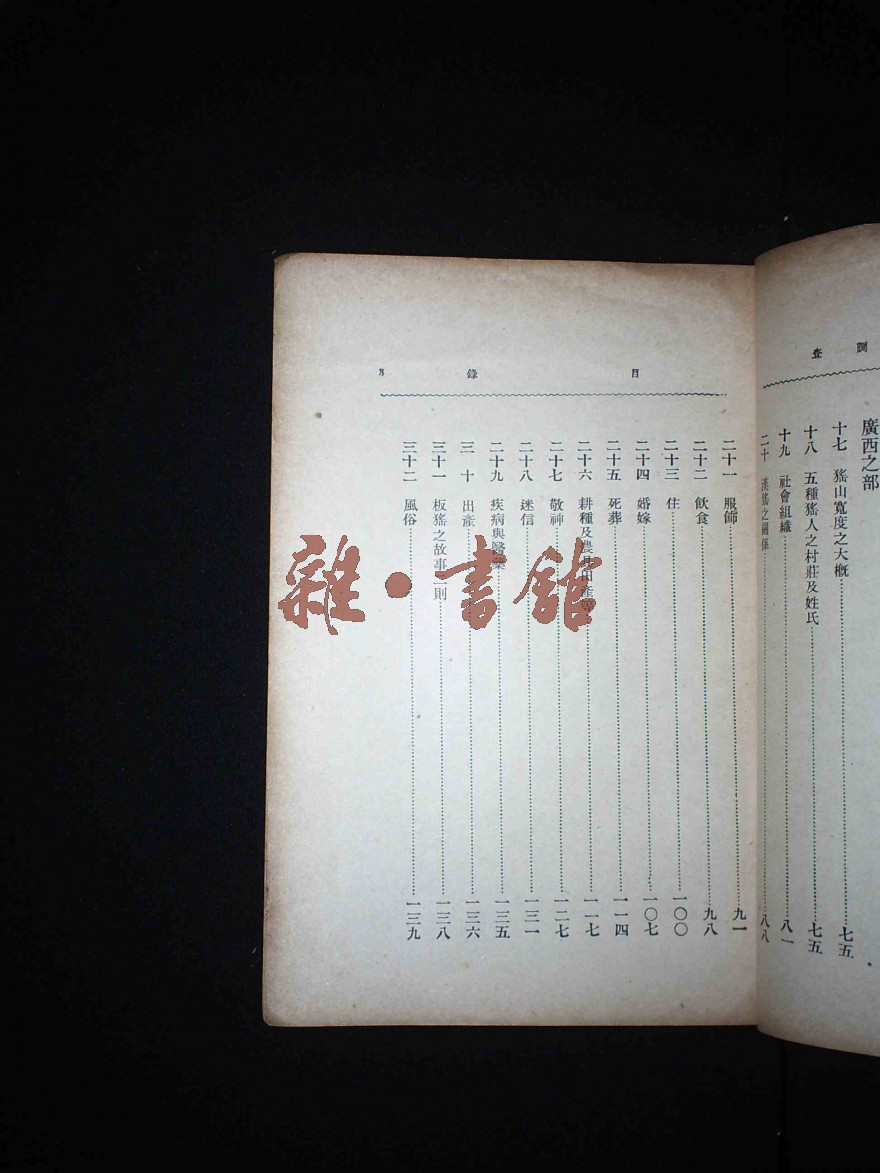 調查
廣西之部
十七 猺山寬度之大概 七五
十八 五種猺人之村莊及姓氏 七五
十九 社會組織 八一
二十 漢猺之關係 八八
目錄
二十一 服飾 九一
二十二 飲食 九八
二十三 住 一〇〇
二十四 婚嫁 一〇七
二十五 死葬 一一四
二十六 耕種及農具田產 一一七
二十七 敬神 一二七
二十八 迷信 一三一
二十九 疾病與醫藥 一三五
三十 出產 一三六
三十一 板猺之故事二則 一三八
三十二 風俗 一三九
雜·書館